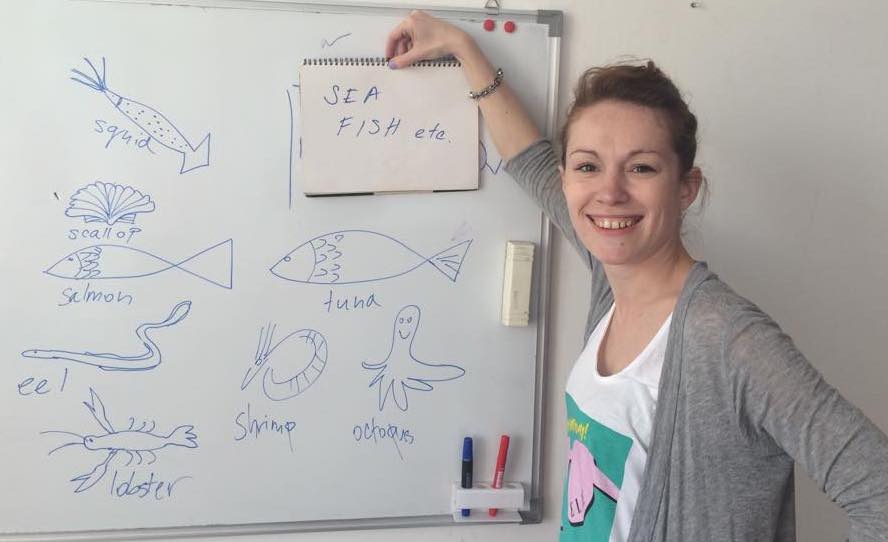 SEA
FISH etc.
squid
scallop
salmon
tuna
eel
shrimp
octopus
lobster